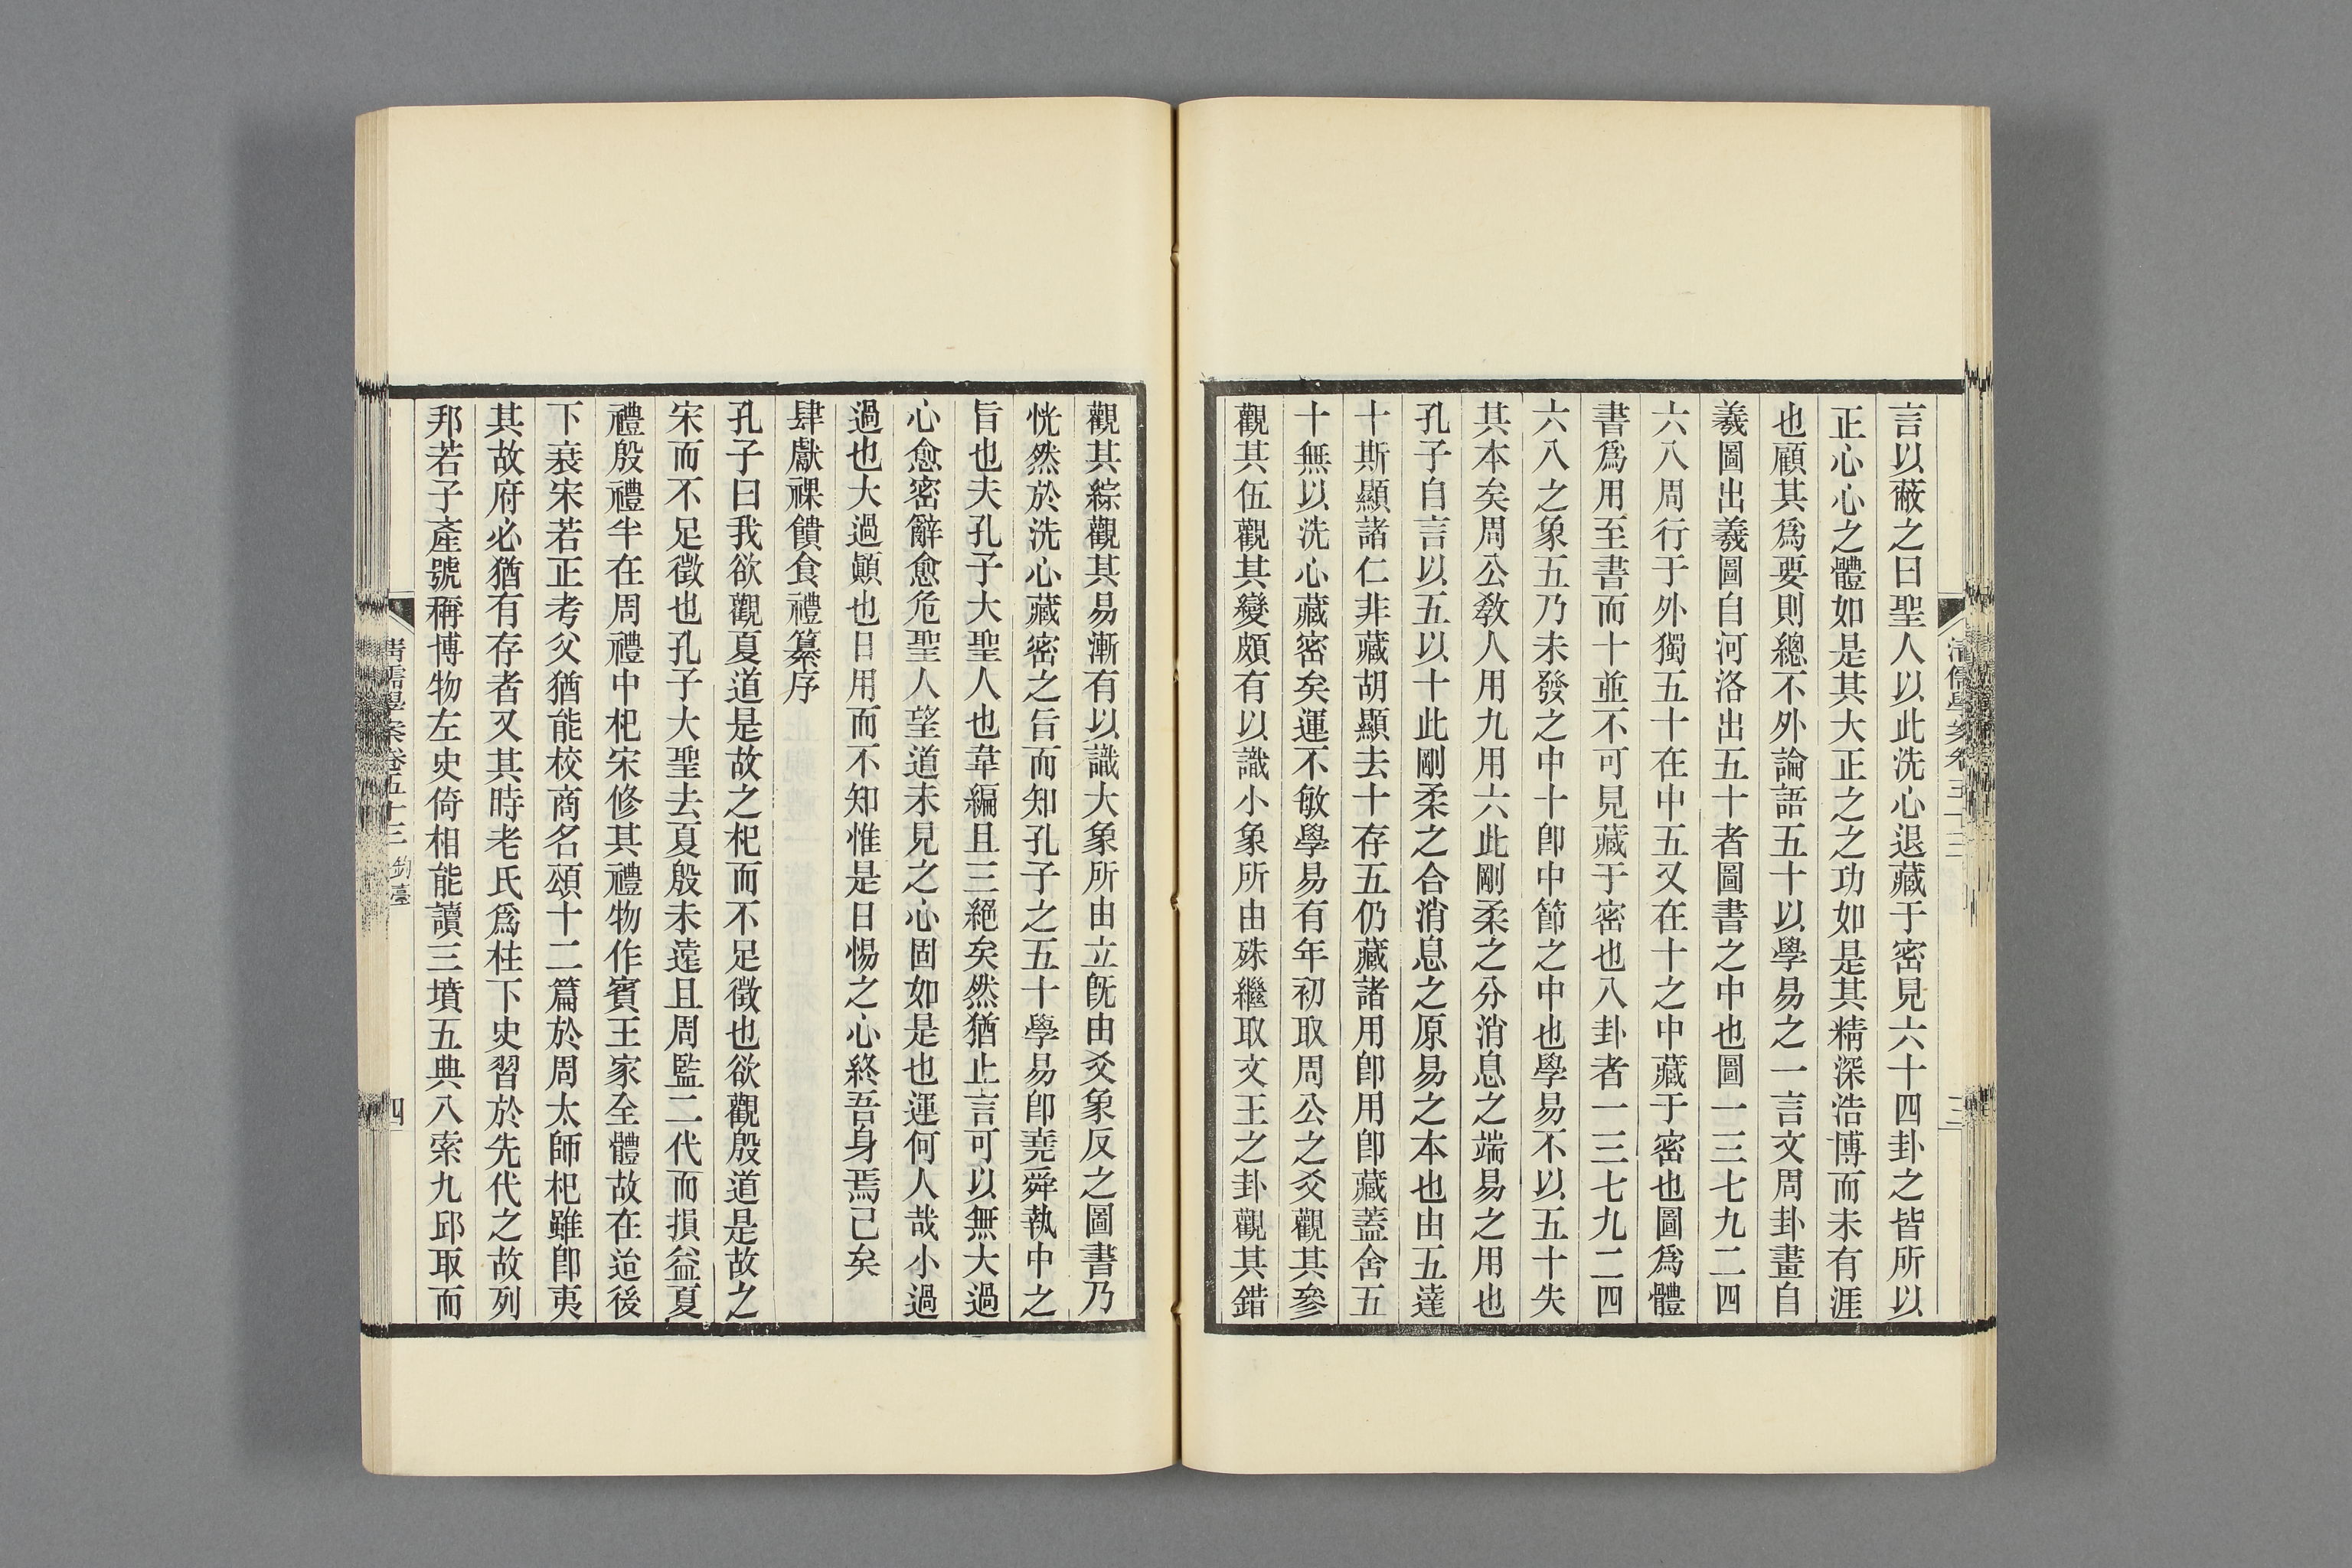 言以蔽之曰聖人以此洗心退藏于密見六十四卦之皆所以
正心心之體如是其大正之之功如是其精深浩博而未有涯
也顧其爲要則總不外論語五十以學易之一言文周卦畫自
羲圖出羲圖自河洛出五十者圖書之中也圖一三七九二四
六八周行于外獨五十在中五又在十之中藏于密也圖爲體
書爲用至書而十並不可見藏于密也八卦者一三七九二四
六八之象五乃未發之中十卽中節之中也學易不以五十失
其本矣周公敎人用九用六此剛柔之分消息之端易之用也
孔子自言以五以十此剛柔之合消息之原易之本也由五達
十斯顯諸仁非藏胡顯去十存五仍藏諸用卽用卽藏蓋舍五
十無以洗心藏密矣運不敏學易有年初取周公之爻觀其參
觀其伍觀其變頗有以識小象所由殊繼取文王之卦觀其錯
清儒學案卷五十三
三
觀其綜觀其易漸有以識大象所由立旣由爻象反之圖書乃
恍然於洗心藏密之旨而知孔子之五十學易卽堯舜執中之
旨也夫孔子大聖人也韋編且三絕矣然猶止言可以無大過
心愈密辭愈危聖人望道未見之心固如是也運何人哉小過
過也大過顚也日用而不知惟是日惕之心終吾身焉已矣
肆獻祼饋食禮纂序
孔子曰我欲觀夏道是故之杞而不足徵也欲觀殷道是故之
宋而不足徵也孔子大聖去夏殷未遠且周監二代而損益夏
禮殷禮半在周禮中杞宋修其禮物作賓王家全體故在迨後
下衰宋若正考父猶能校商名頌十二篇於周太師杞雖卽夷
其故府必猶有存者又其時老氏爲柱下史習於先代之故列
邦若子產號稱博物左史倚相能讀三墳五典八索九邱取而
清儒學案卷五十三 釣臺
四